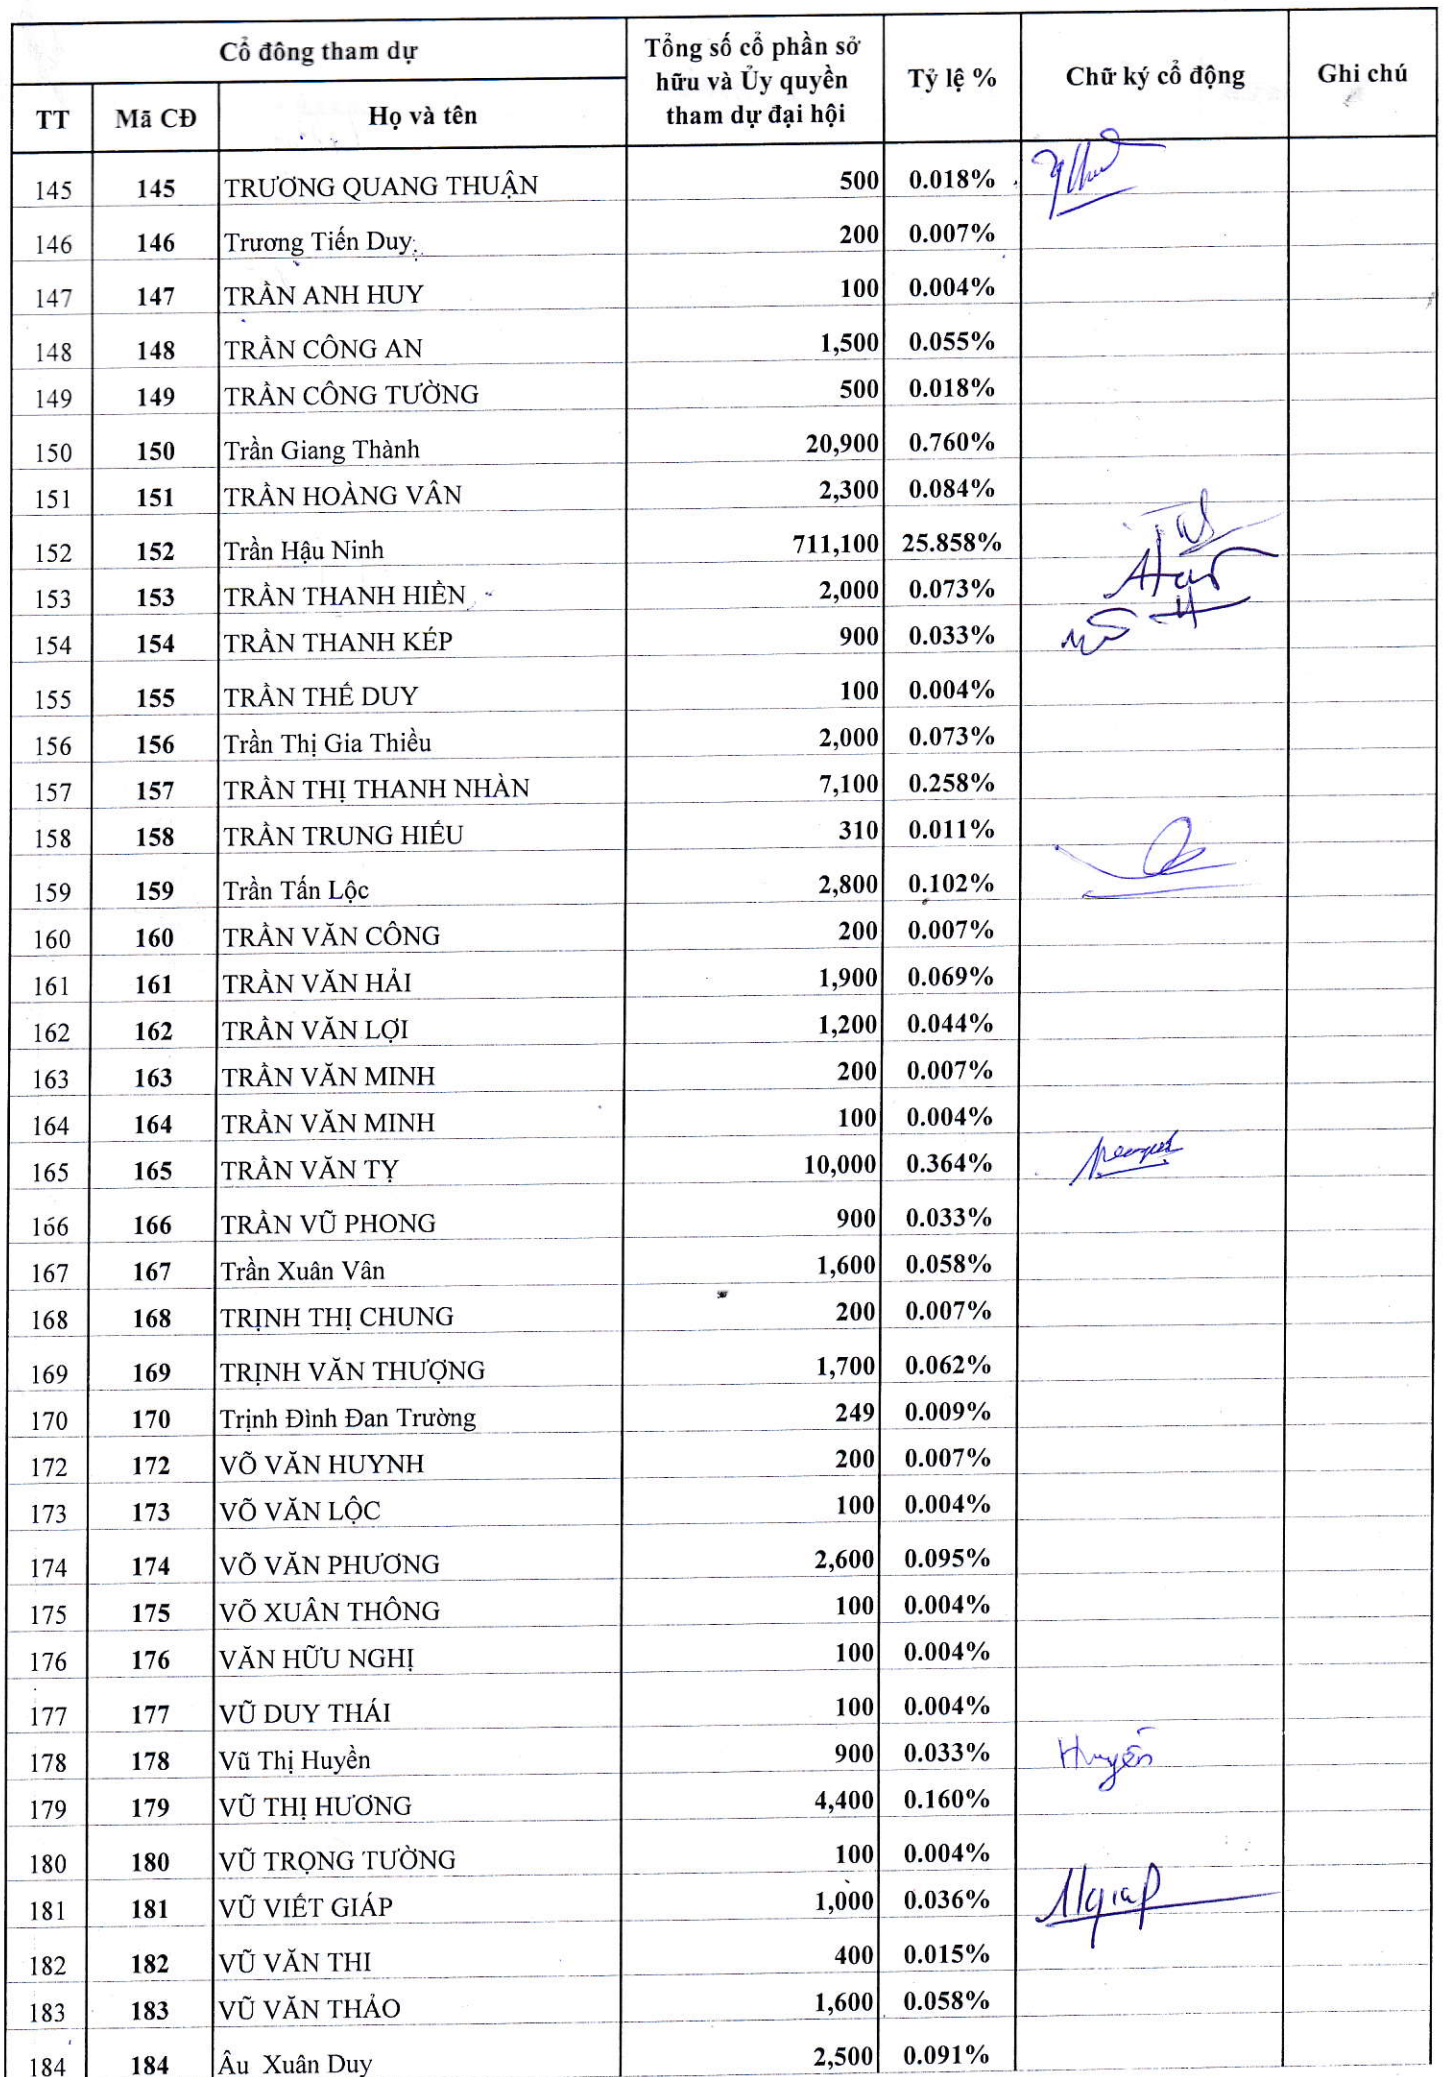 Cổ đông tham dự
Tổng số cổ phần sở
hữu và Ủy quyền
tham dự đại hội
Tỷ lệ %
Chữ ký cổ động
Ghi chú
TT Mã CĐ Họ và tên
145 145 TRƯƠNG QUANG THUẬN 500 0.018%
146 146 Trương Tiến Duy 200 0.007%
147 147 TRẦN ANH HUY 100 0.004%
148 148 TRẦN CÔNG AN 1,500 0.055%
149 149 TRẦN CÔNG TƯỜNG 500 0.018%
150 150 Trần Giang Thành 20,900 0.760%
151 151 TRẦN HOÀNG VÂN 2,300 0.084%
152 152 Trần Hậu Ninh 711,100 25.858%
153 153 TRẦN THANH HIỀN 2,000 0.073%
154 154 TRẦN THANH KÉP 900 0.033%
155 155 TRẦN THẾ DUY 100 0.004%
156 156 Trần Thị Gia Thiều 2,000 0.073%
157 157 TRẦN THỊ THANH NHÀN 7,100 0.258%
158 158 TRẦN TRUNG HIẾU 310 0.011%
159 159 Trần Tấn Lộc 2,800 0.102%
160 160 TRẦN VĂN CÔNG 200 0.007%
161 161 TRẦN VĂN HẢI 1,900 0.069%
162 162 TRẦN VĂN LỢI 1,200 0.044%
163 163 TRẦN VĂN MINH 200 0.007%
164 164 TRẦN VĂN MINH 100 0.004%
165 165 TRẦN VĂN TỴ 10,000 0.364%
166 166 TRẦN VŨ PHONG 900 0.033%
167 167 Trần Xuân Vân 1,600 0.058%
168 168 TRỊNH THỊ CHUNG 200 0.007%
169 169 TRỊNH VĂN THƯỢNG 1,700 0.062%
170 170 Trịnh Đình Đan Trường 249 0.009%
172 172 VÕ VĂN HUYNH 200 0.007%
173 173 VÕ VĂN LỘC 100 0.004%
174 174 VÕ VĂN PHƯƠNG 2,600 0.095%
175 175 VÕ XUÂN THÔNG 100 0.004%
176 176 VĂN HỮU NGHỊ 100 0.004%
177 177 VŨ DUY THÁI 100 0.004%
178 178 Vũ Thị Huyền 900 0.033% Huyền
179 179 VŨ THỊ HƯƠNG 4,400 0.160%
180 180 VŨ TRỌNG TƯỜNG 100 0.004%
181 181 VŨ VIẾT GIÁP 1,000 0.036%
182 182 VŨ VĂN THI 400 0.015%
183 183 VŨ VĂN THẢO 1,600 0.058%
184 184 Âu Xuân Duy 2,500 0.091%